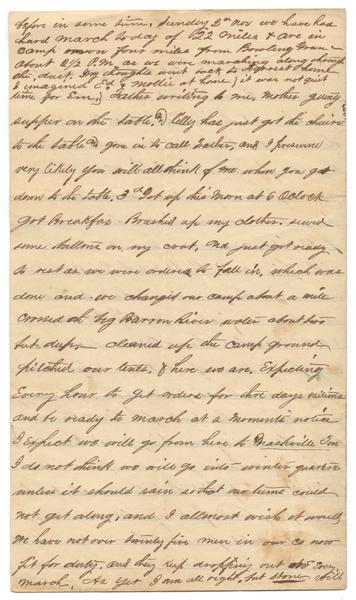 before in some time, Sunday 2d Nov we have had
hard march to day of 22 miles & are in
camp now four miles from Bowling Green
About 2 1/2 P.M as we were marching along through
the dust, my thoughts went back to home
I imagined Ed & Mollie at home, it was not quite
time for Em. Father writing to me, Mother giving
supper on the table, & Lilly has just got the chairs
to the table & gone in to call Father, and I presume
very likely you will all think of me when you get
down to the table, 3d Got up this Morn at 6 Oclock
Got Breakfas Brushed up my clothes. sewed
some buttons on my coat, and just got ready
to rest as we were ordered to fall in, which was
done and we changed our camp about a mile
Crossed oh Big Barron River water about two
feet deep, cleaned up the camp ground
pitched our tents, & here we are, Expecting
Every hour to get orders for three days rations
and be ready to march at a moments notice
I expect we will go from here to Nashville Ten
I do not think we will go into winter quarters
unless it should rain so that our teams could
not get along, and I allmost wish it would
We have not over twenty five men in our co now
fit for duty. and they keep dropping out Every
march, As yet I am all right, but still